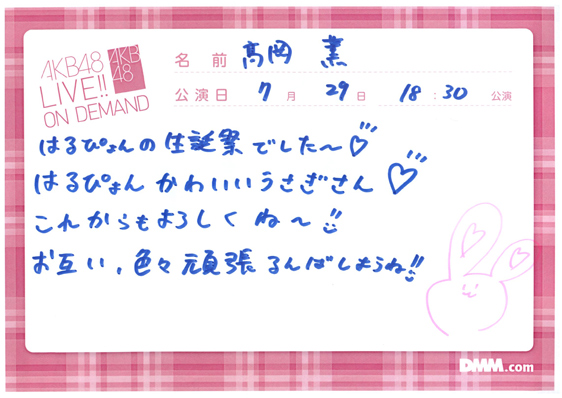 AKB48
LIVE!!
ON DEMAND
AKB
48
名前 高岡 薫
公演日 7月 29日 18:30 公演
はるぴょんの生誕祭でした〜♡
はるぴょんかわいいうさぎさん♡
これからもよろしくね〜!!
お互い、色々頑張るんばしようね!!
DMM.com